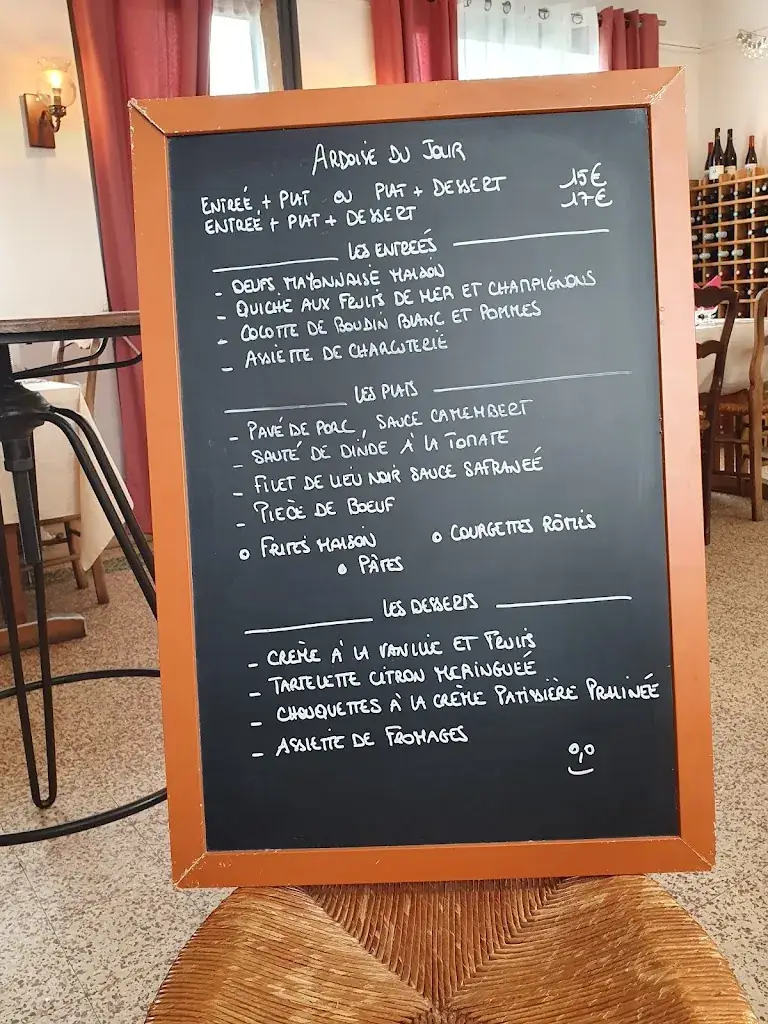 ARDOISE DU JOUR
ENTREÉ + PLAT OU PLAT + DESSERT 15€
ENTREÉ + PLAT + DESSERT 17€
LES ENTREÉS
- OEUFS MAYONNAISE MAISON
- QUICHE AUX FRUITS DE MER ET CHAMPIGNONS
- COCOTTE DE BOUDIN BLANC ET POMMES
- ASSIETTE DE CHARCUTERIE
LES PLATS
- PAVÉ DE PORC, SAUCE CAMEMBERT
- SAUTÉ DE DINDE À LA TOMATE
- FILET DE LIEU NOIR SAUCE SAFRANEÉ
- PIECÈ DE BOEUF
o FRITES MAISON o COURGETTES RÔTIES
o PÂTES
LES DESSERTS
- CRÈME À LA VANILLE ET FRUITS
- TARTELETTE CITRON MERINGUEÉ
- CHOUQUETTES À LA CRÈME PATISSIÈRE PRALINÉE
- ASSIETTE DE FROMAGES